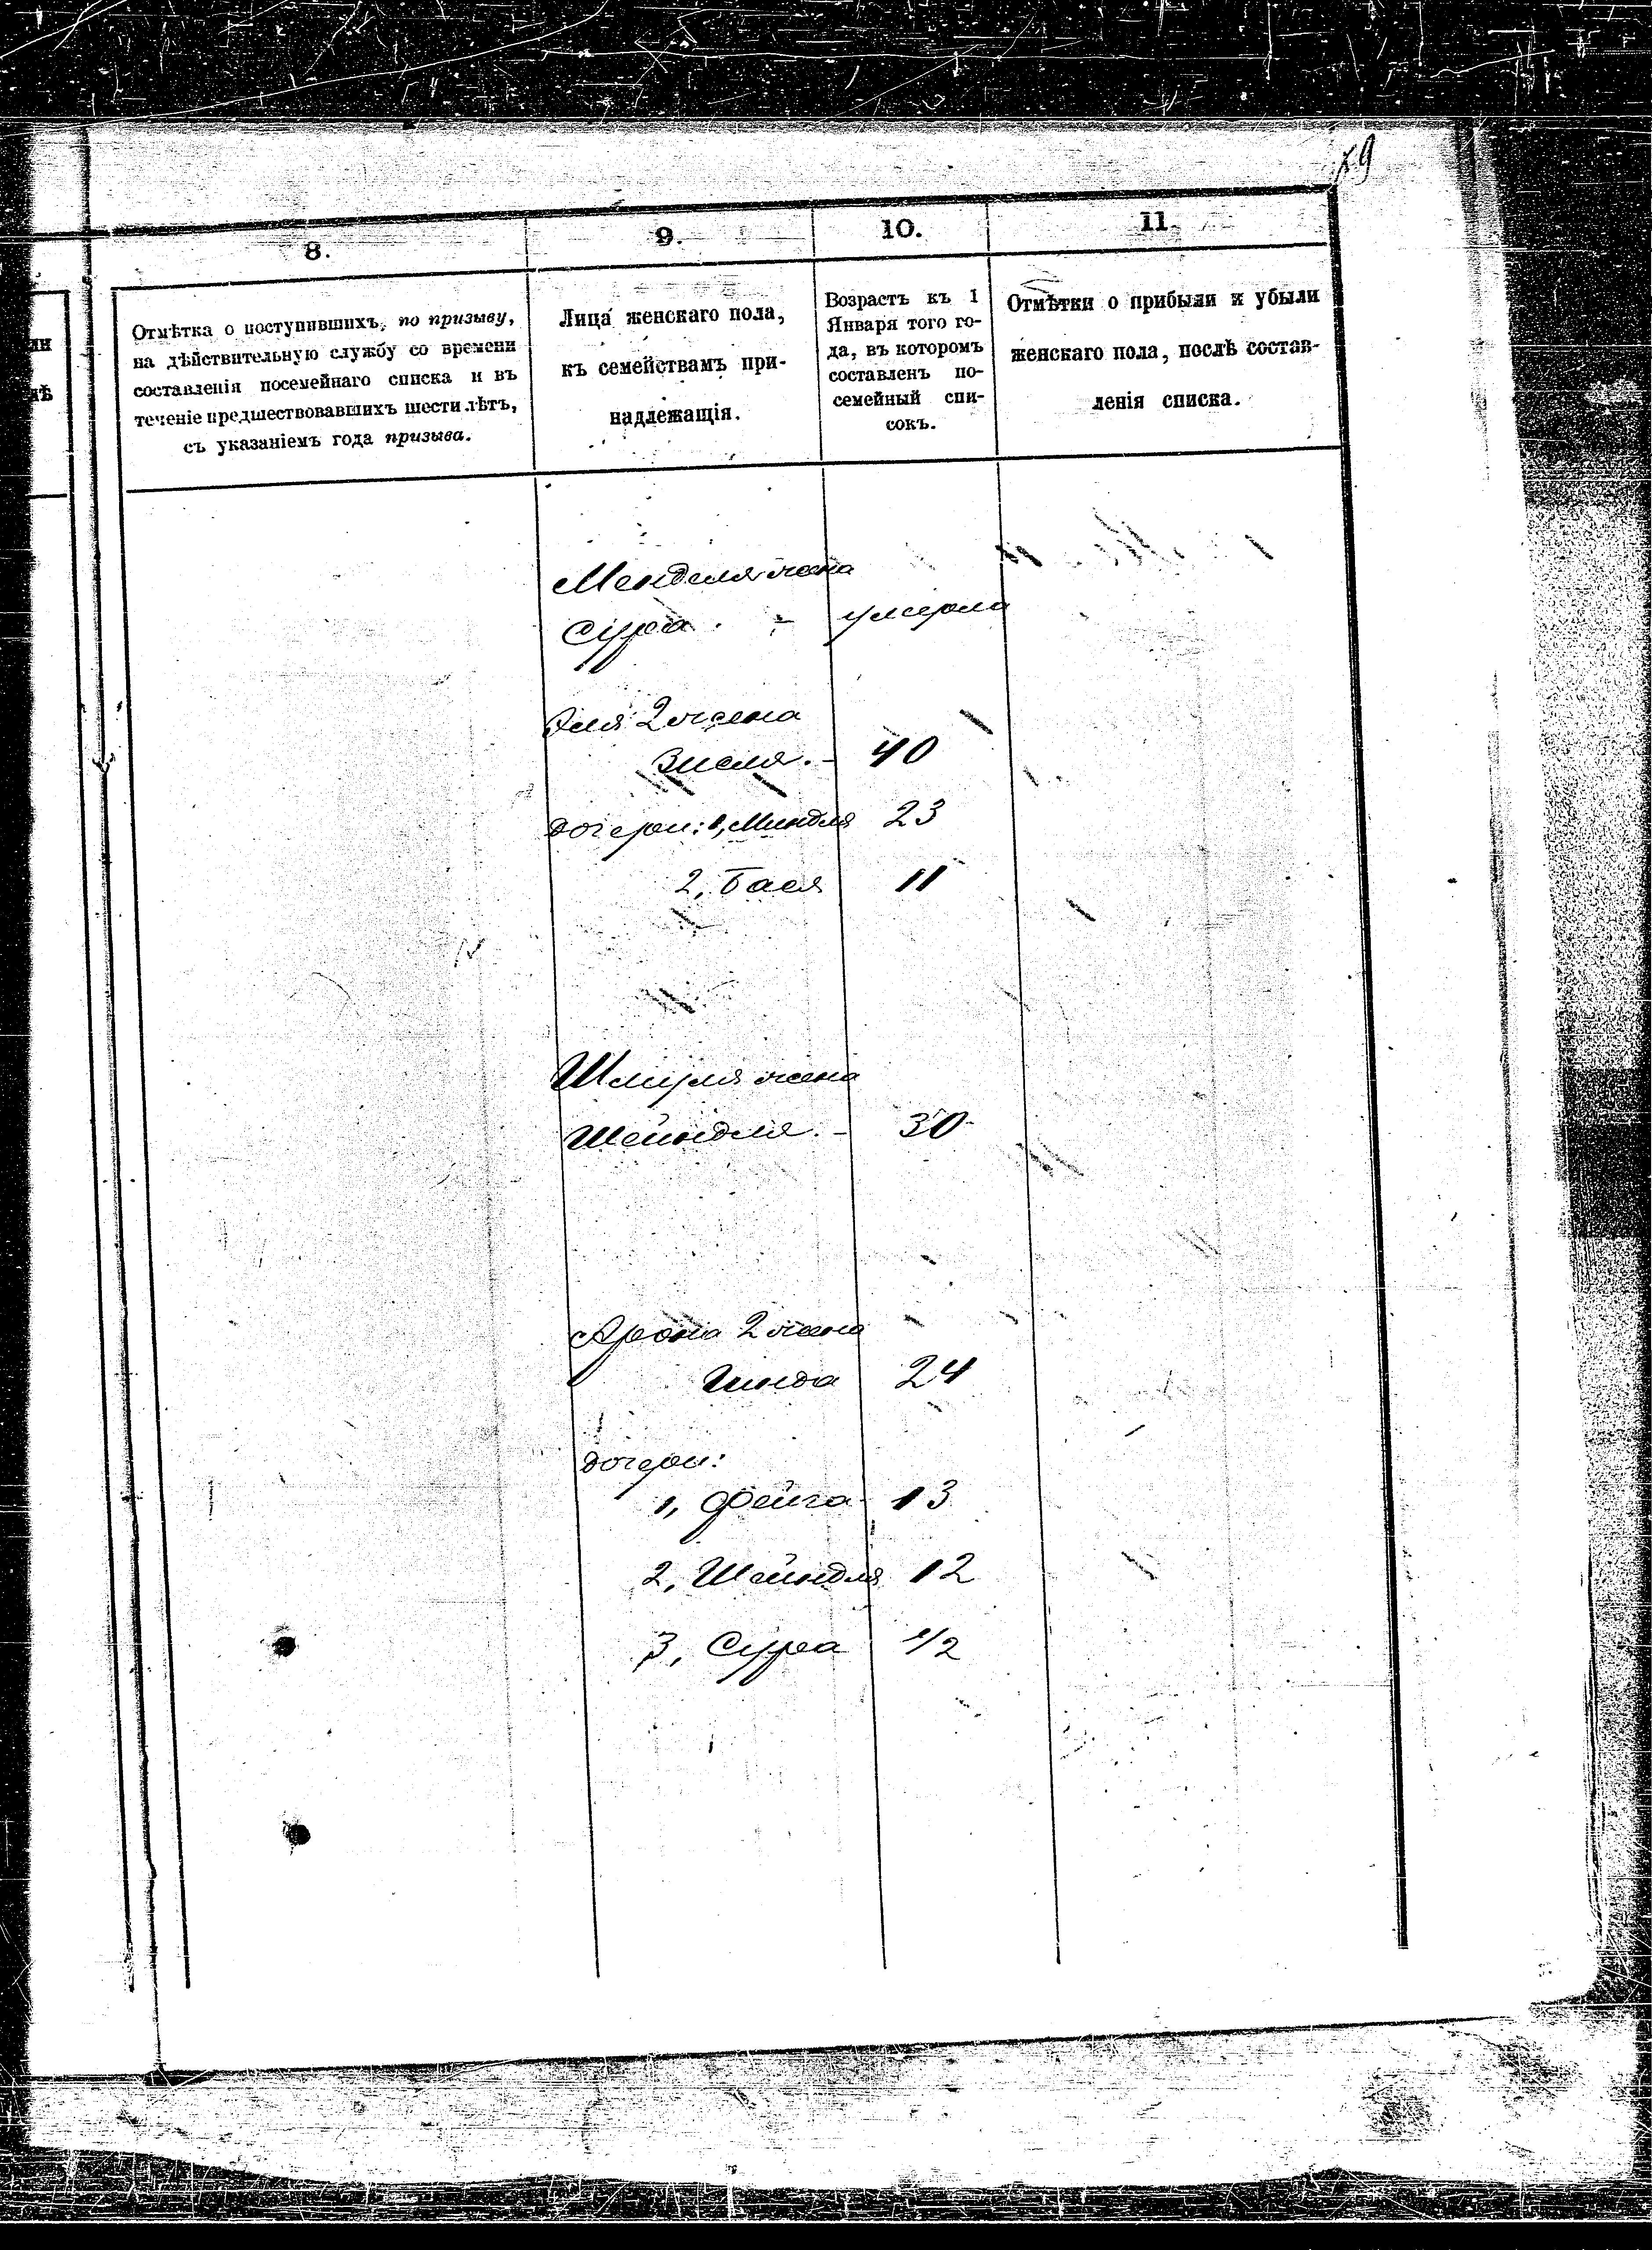 8.
9.
10.
11.
Отмѣтка о поступившихъ, по призыву,
на дѣйствительную службу со времени
составленія посемейнаго списка и въ
теченіе предшествовавшихъ шести лѣтъ,
съ указаніемъ года призыва.
Лица женскаго пола,
къ семействамъ при-
надлежащія.
Возрастъ къ 1
Января того го-
да, въ которомъ
составленъ по-
семейный спи-
сокъ.
Отмѣтки о прибыли и убыли
женскаго пола, послѣ состав-
ленія списка.
Менделя жена
Сура - умерла
Эля 2 жена
Зисля. - 40
дочери: 1, Миндля 23
2, Бася 11
Шмуля жена
Шейндля. - 30
Арона 2 жена
Гинда 24
дочери:
1, Фейга 13
2, Шейндля 12
3, Сура 1/2